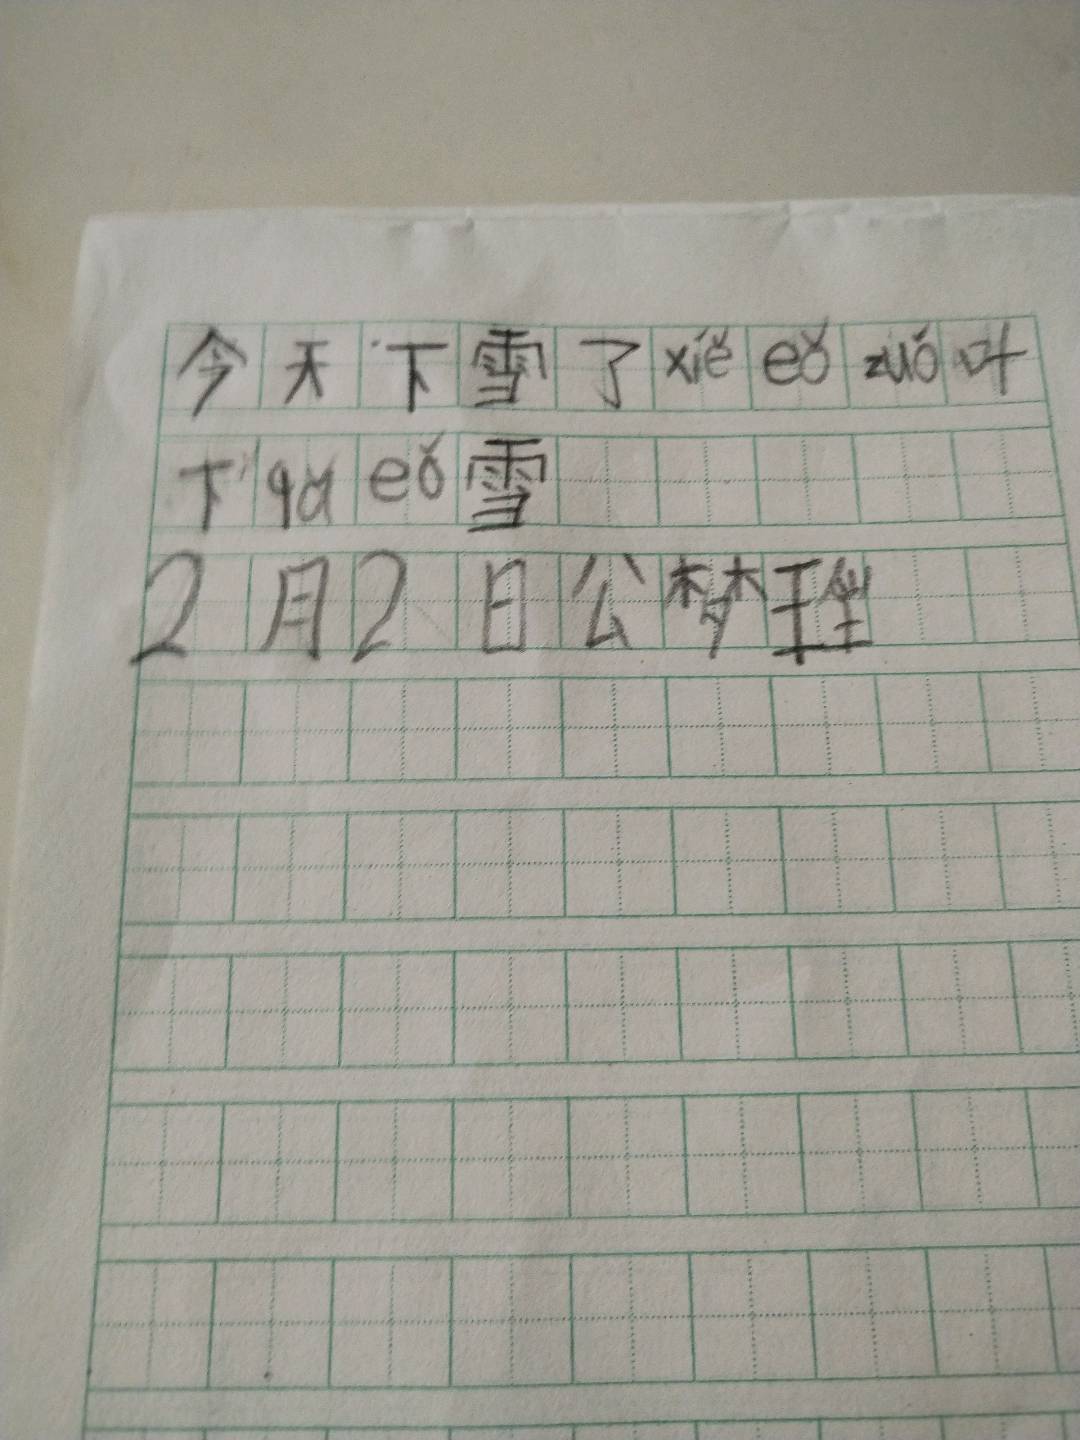 今天下雪了xiě eǒ zuó 叶
下 qǎ eǒ 雪
2月2日公梦瑆